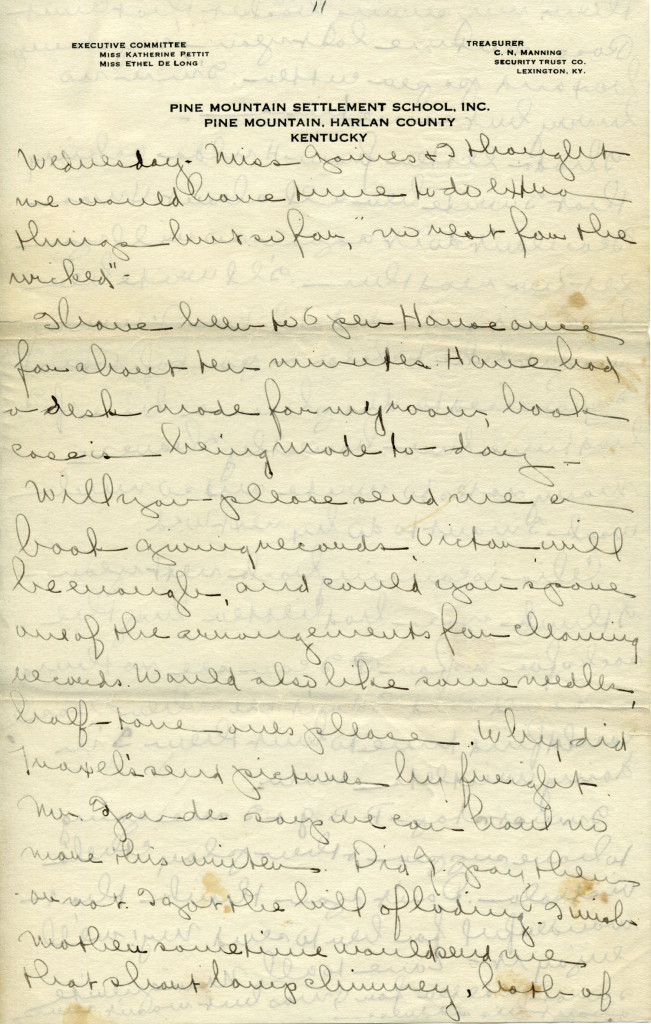 11
EXECUTIVE COMMITTEE
MISS KATHERINE PETTIT
MISS ETHEL DE LONG
TREASURER
C. N. MANNING
SECURITY TRUST CO.
LEXINGTON, KY.
PINE MOUNTAIN SETTLEMENT SCHOOL, INC.
PINE MOUNTAIN, HARLAN COUNTY
KENTUCKY
Wednesday - Miss Gaines & I thought
we would have time to do extra
things but so far, "no rest for the
wicked" -
I have been to Open House once
for about ten minutes. Have had
a desk made for my room, book
case is being made to-day -
Will you please send me a
book giving records, Victor will
be enough, and could you spare
one of the arrangements for cleaning
records. Would also like some needles,
half-tone ones please. Why did
Traxel's send pictures by freight
Mr. Zande says we can haul no
more this winter. Did I pay them
or not. I got the bill of lading. I wish
mother sometime would send me
that short lamp chimney, both of